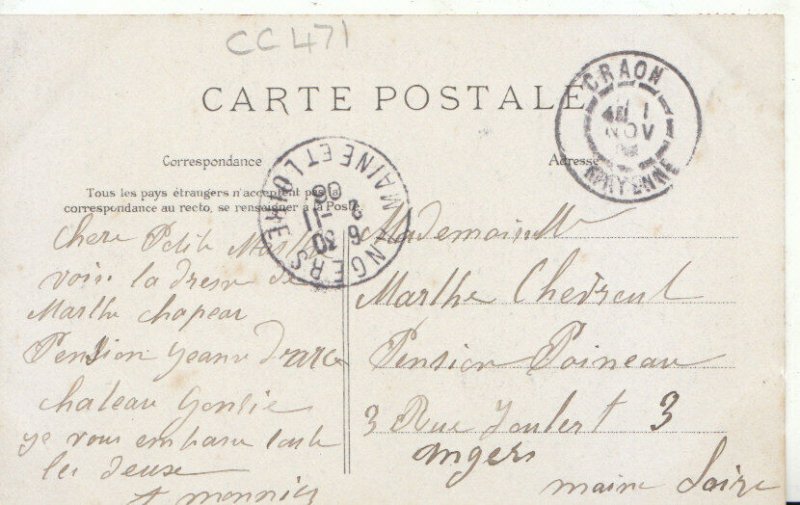 CC 471
CARTE POSTALE
CRAON
1
NOV
MAYENNE
Correspondance
Adresse
Tous les pays étrangers n'acceptent pas la
correspondance au recto, se renseigner à la Poste.
ANGERS
MAINE ET LOIRE
chere Petite
voisi la dresse de
Marthe chapeau
Pension Jeanne Darc
chateau Gontie
je vous embrasse toute
les deuse
Mademoiselle
Marthe Chevreul
Pension Poineau
3 Rue Joubert 3
angers
maine Loire